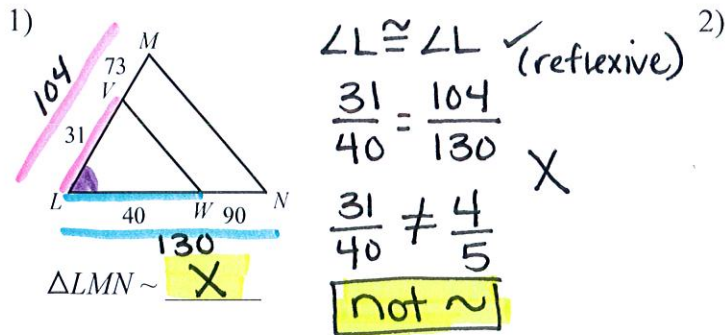 1)
2)
104
73
M
V
31
L
40
W
90
N
130
△LMN ~ X
∠L ≅ ∠L ✓ (reflexive)
31/40 = 104/130 X
31/40 ≠ 4/5
not ~